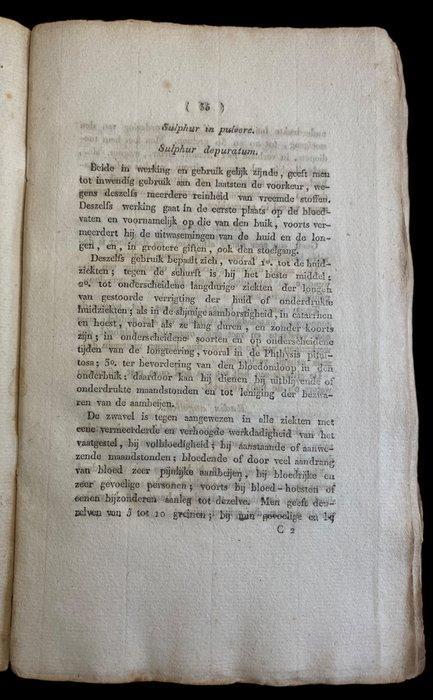 ( 35 )
Sulphur in pulvere.
Sulphur depuratum.
Beide in werking en gebruik gelijk zijnde, geeft men
tot inwendig gebruik aan den laatsten de voorkeur, we-
gens deszelfs meerdere reinheid van vreemde stoffen.
Deszelfs werking gaat in de eerste plaats op de bloed-
vaten en voornamelijk op die van den buik, voorts ver-
meerdert hij de uitwasemingen van de huid en de lon-
gen, en, in grootere giften, ook den stoelgang.
Deszelfs gebruik bepaalt zich, vooral 1°. tot de huid-
ziekten; tegen de schurft is hij het beste middel;
2°. tot onderscheidene langdurige ziekten der longen
van gestoorde verrigting der huid of onderdrukte
huidziekten; als in de slijmige aamborstigheid, in catarrhen
en hoest, vooral als ze lang duren, en zonder koorts
zijn; in onderscheidene soorten en op onderscheidene
tijden van de longteering, vooral in de Phthysis pitui-
tosa; 3°. ter bevordering van den bloedomloop in den
onderbuik; daardoor kan hij dienen bij uitblijvende of
onderdrukte maandstonden en tot leniging der bezwa-
ren van de aambeijen.
De zwavel is tegen aangewezen in alle ziekten met
eene vermeerderde en verhoogde werkdadigheid van het
vaatgestel, bij volbloedigheid; bij aanstaande of aanwe-
zende maandstonden; bloedende of door veel aandrang
van bloed zeer pijnlijke aambeijen, bij bloedrijke en
zeer gevoelige personen; voorts bij bloed-hoesten of
eenen bijzonderen aanleg tot dezelve. Men geeft den-
zelven van 5 tot 10 greinen; bij min gevoelige en bij
C 2